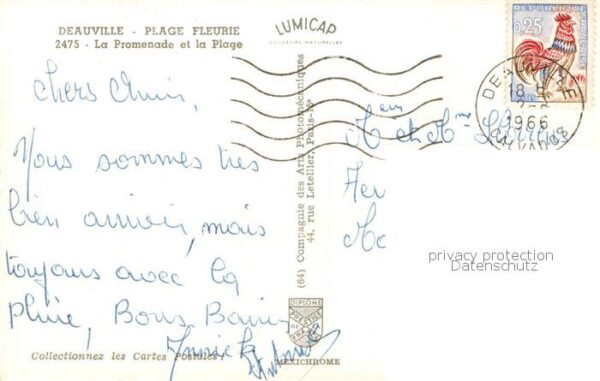 DEAUVILLE - PLAGE FLEURIE
2475 - La Promenade et la Plage
LUMICAP
SOUVENIRS NATURELLES
0,25
DEAUVILLE
18 H
1966
CALVADOS
Chers Amis,
Nous sommes très
bien arrivés, mais
toujours avec la
pluie, Bons Baisers
Collectionnez les Cartes Postales
(64) Compagnie des Arts Photomécaniques
44, rue Letellier, Paris-15e
DIPLOME
PRESTIGE
DE
FRANCE
MEXICHROME
et Mme
privacy protection
Datenschutz